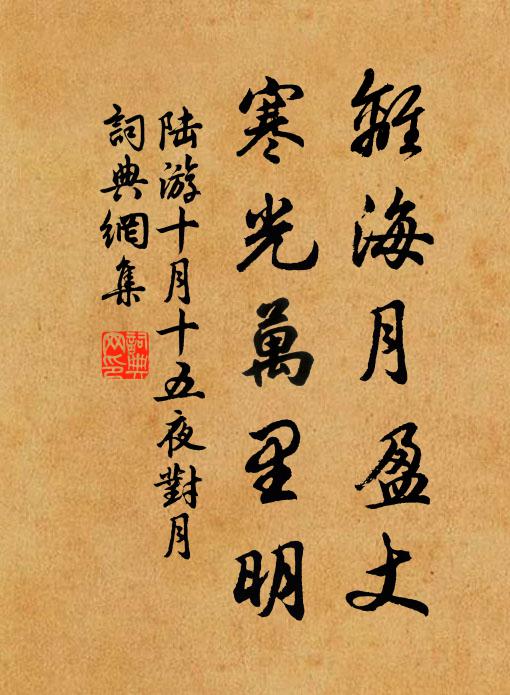 離海月盈丈
寒光萬里明
陸游十月十五夜對月
詞典網集
詞典
网印